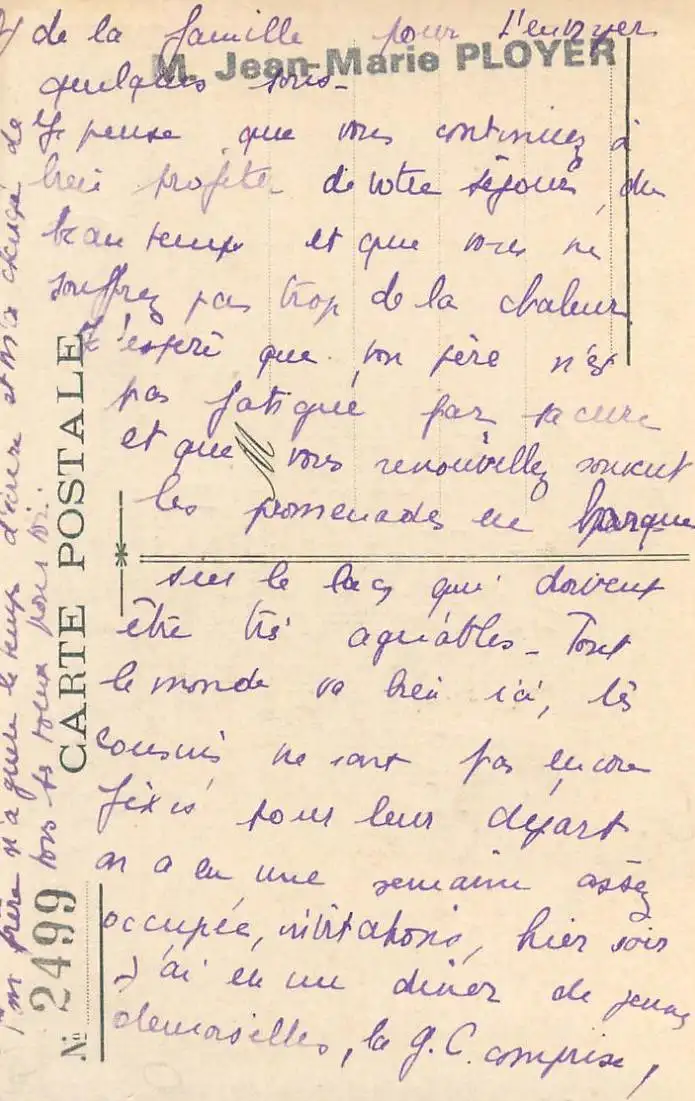 de la famille pour t'envoyer
M. Jean-Marie PLOYER
quelques
Je pense que vous continuez à
bien profiter de votre séjour, du
beau temps et que vous ne
souffrez pas trop de la chaleur
J'espère que ton père n'est
pas fatigué par sa cure
et que vous renouvellez souvent
les promenades en barque
sur le lac, qui doivent
être très agréables - Tout
le monde va bien ici, les
cousins ne sont pas encore
fixés pour leur départ
on a eu une semaine assez
occupée, invitations, hier soir
j'ai eu un dîner de jeunes
demoiselles, la G.C. comprise,
CARTE POSTALE
№ 2499
mon frère n'a guère le temps d'écrire et m'a chargé de
tous ses voeux pour toi.